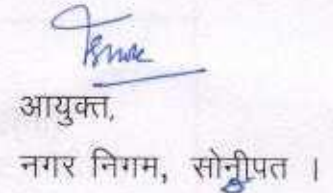 आयुक्त,
नगर निगम, सोनीपत ।